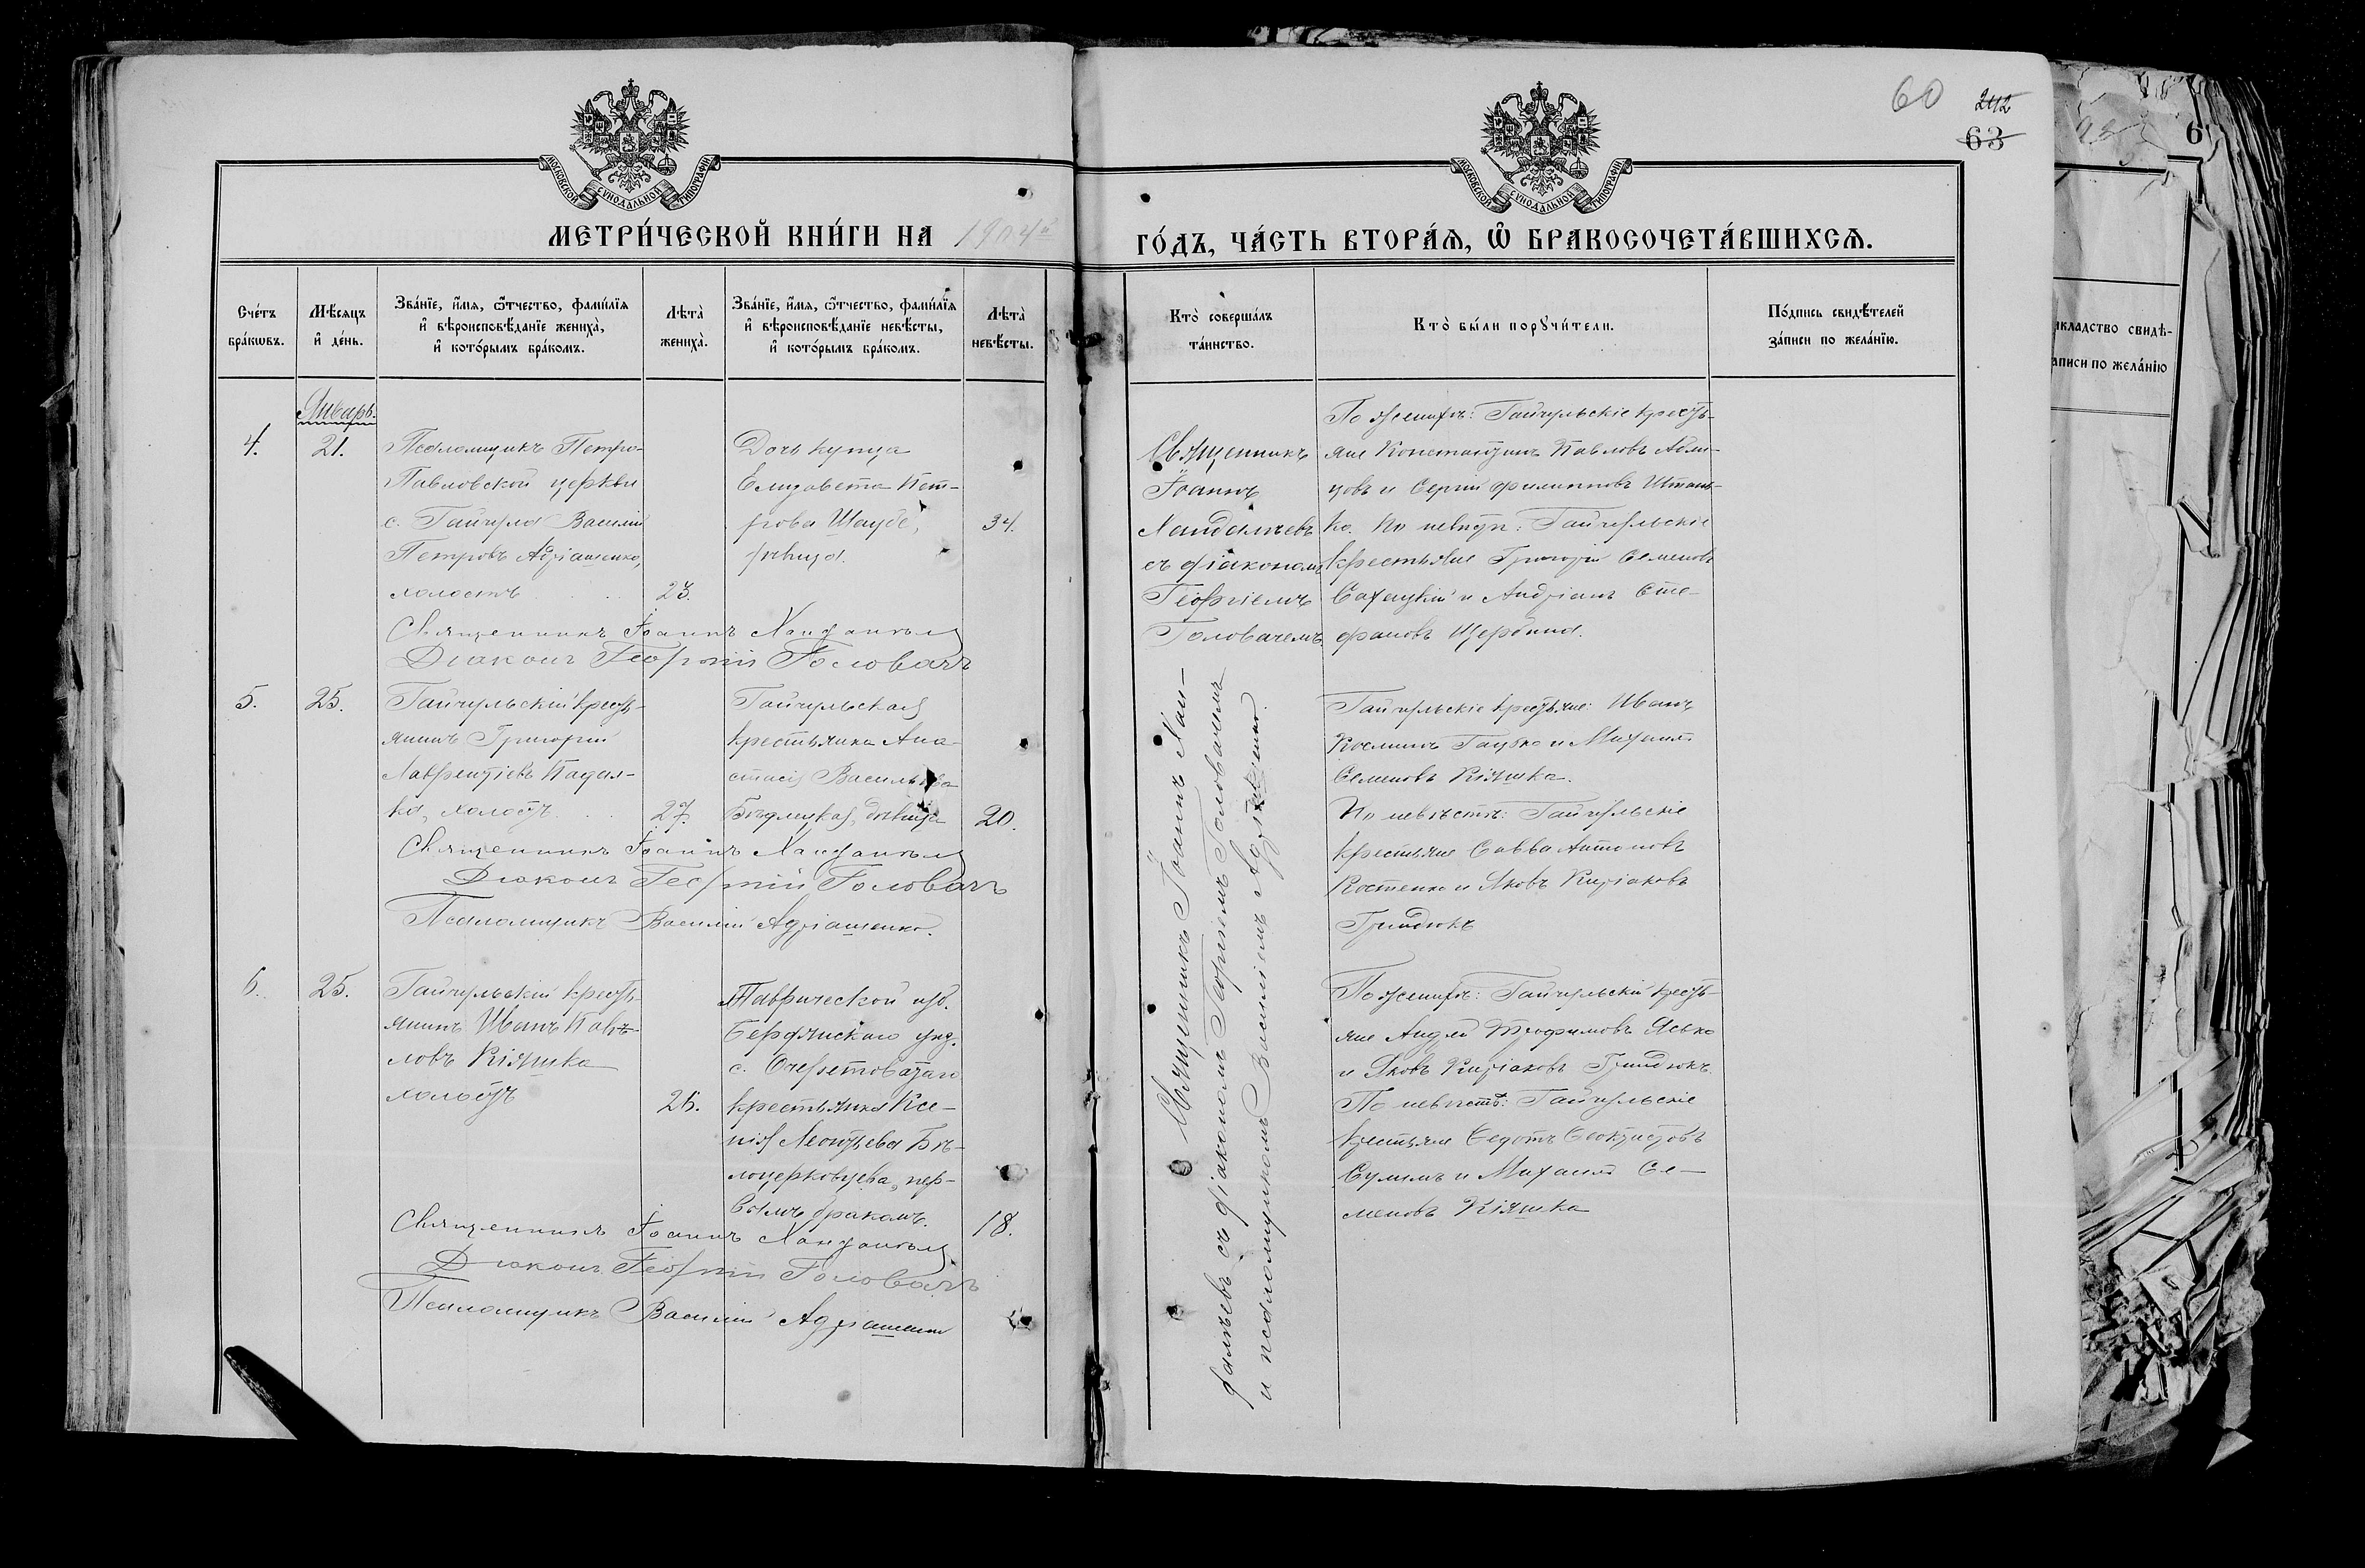 60
242
63
МОСКОВСКОЙ СѴНОДАЛЬНОЙ ТИПОГРАФІИ
МОСКОВСКОЙ СѴНОДАЛЬНОЙ ТИПОГРАФІИ
МЕТРИ́ЧЕСКОЙ КНИ́ГИ НА 1904й ГО́ДЪ, ЧА́СТЬ ВТОРА́Ѧ, Ѡ҆ БРАКОСОЧЕТА́ВШИХСѦ.
Сче́тъ бра́кѡвъ.
Мѣ́сяцъ и҆ де́нь.
Зва́нїе, и҆́мѧ, ѻ҆́тчество, фами́лїѧ
и҆ вѣроисповѣ́данїе жениха̀,
и҆ кото́рымъ бра́комъ.
Лѣта̀ жениха̀.
Зва́нїе, и҆́мѧ, ѻ҆́тчество, фами́лїѧ
и҆ вѣроисповѣ́данїе невѣ́сты,
и҆ кото́рымъ бра́комъ.
Лѣта̀ невѣ́сты.
Кто̀ соверша́лъ та́инство.
Кто̀ бы́ли порꙋчи́тели.
По́дпись свидѣ́телей
за́писи по жела́нїю.
Январь.
4.
21.
Псаломщикъ Петро-
Павловской церкви
с. Гайчула Василій
Петровъ Адріашенко,
холостъ
23.
Дочь купца
Елизавета Пет-
рова Шаубе,
дѣвица.
34.
Священникъ
Іоаннъ
Хандалѣевъ
съ діакономъ
Георгіемъ
Головачемъ.
По женихѣ: Гайчульскіе кресть-
яне Константинъ Павловъ
и Сергій Филипповъ Штань-
ко. По невѣстѣ: Гайчульскіе
крестьяне Григорій Семеновъ
и Андріанъ Сте-
фановъ Щербина.
Священникъ Іоаннъ
Діаконъ Георгій Головачъ
5.
25.
Гайчульскій кресть-
янинъ Григорій
Лаврентіевъ Падал-
ка, холостъ
27.
Гайчульская
крестьянка Ана-
стасія Васильева
дѣвица
20.
Священникъ Іоаннъ Хан-
далѣевъ съ діакономъ Георгіемъ Головачемъ
и псаломщикомъ Василіемъ Адріашенко.
Гайчульскіе крестьяне: Иванъ
Козминъ и Михаилъ
Семеновъ Кіяшка.
По невѣстѣ: Гайчульскіе
крестьяне Савва Антоновъ
Костенко и Яковъ Киріаковъ
Гриндюкъ
Священникъ Іоаннъ
Діаконъ Георгій Головачъ
Псаломщикъ Василій Адріашенко.
6.
25.
Гайчульскій кресть-
янинъ Иванъ Пав-
ловъ Кіяшка
холостъ
Таврической губ.
Бердянскаго уѣз.
с. Очеретоватаго
крестьянка Ксе-
нія Леонтьева Бѣ-
лоцерковцева, пер-
вымъ бракомъ.
18.
По женихѣ: Гайчульскій кресть-
яне Андрей Трофимовъ Ясько
и Яковъ Киріаковъ Гриндюкъ.
По невѣстѣ: Гайчульскіе
крестьяне Федотъ Феоктистовъ
и Михаилъ Се-
меновъ Кіяшка
Священникъ Іоаннъ
Діаконъ Георгій Головачъ
Псаломщикъ Василій Адріашенко